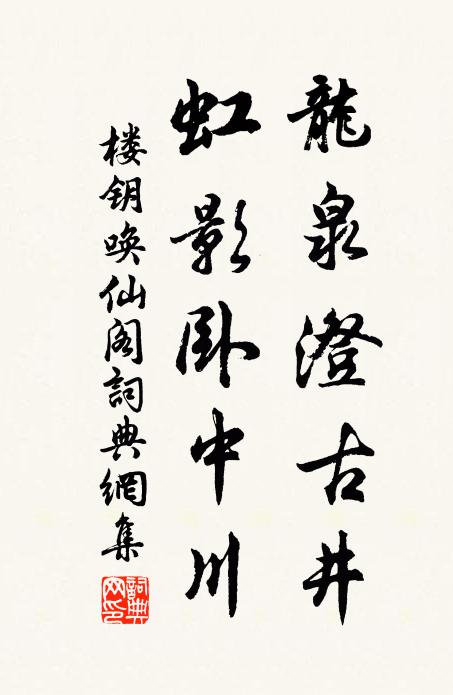 龍泉澄古井
虹影卧中川
楼钥唤仙阁詞典網集
詞典网印